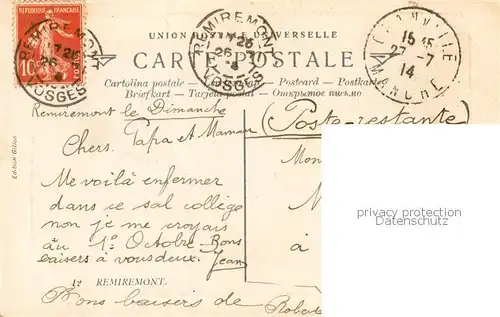 UNION POSTALE UNIVERSELLE
CARTE POSTALE
Cartolina postale Postcard Postkarte
Briefkart Tarjeta postal Открытое письмо
REPUBLIQUE FRANÇAISE
10
REMIREMONT
17 25
26
VOSGES
REMIREMONT
26
VOSGES
15 15
27-7
14
MANCHE
Remiremont le Dimanche
(Poste-restante)
Chers Papa et Maman
Me voilà enfermer
dans ce sal collège
non je me croyais
au 1º Octobre Bons
baisers à vous deux. Jean
Mon
à
Edition Gillon
privacy protection
Datenschutz
12 REMIREMONT.
Bons baisers de Robert